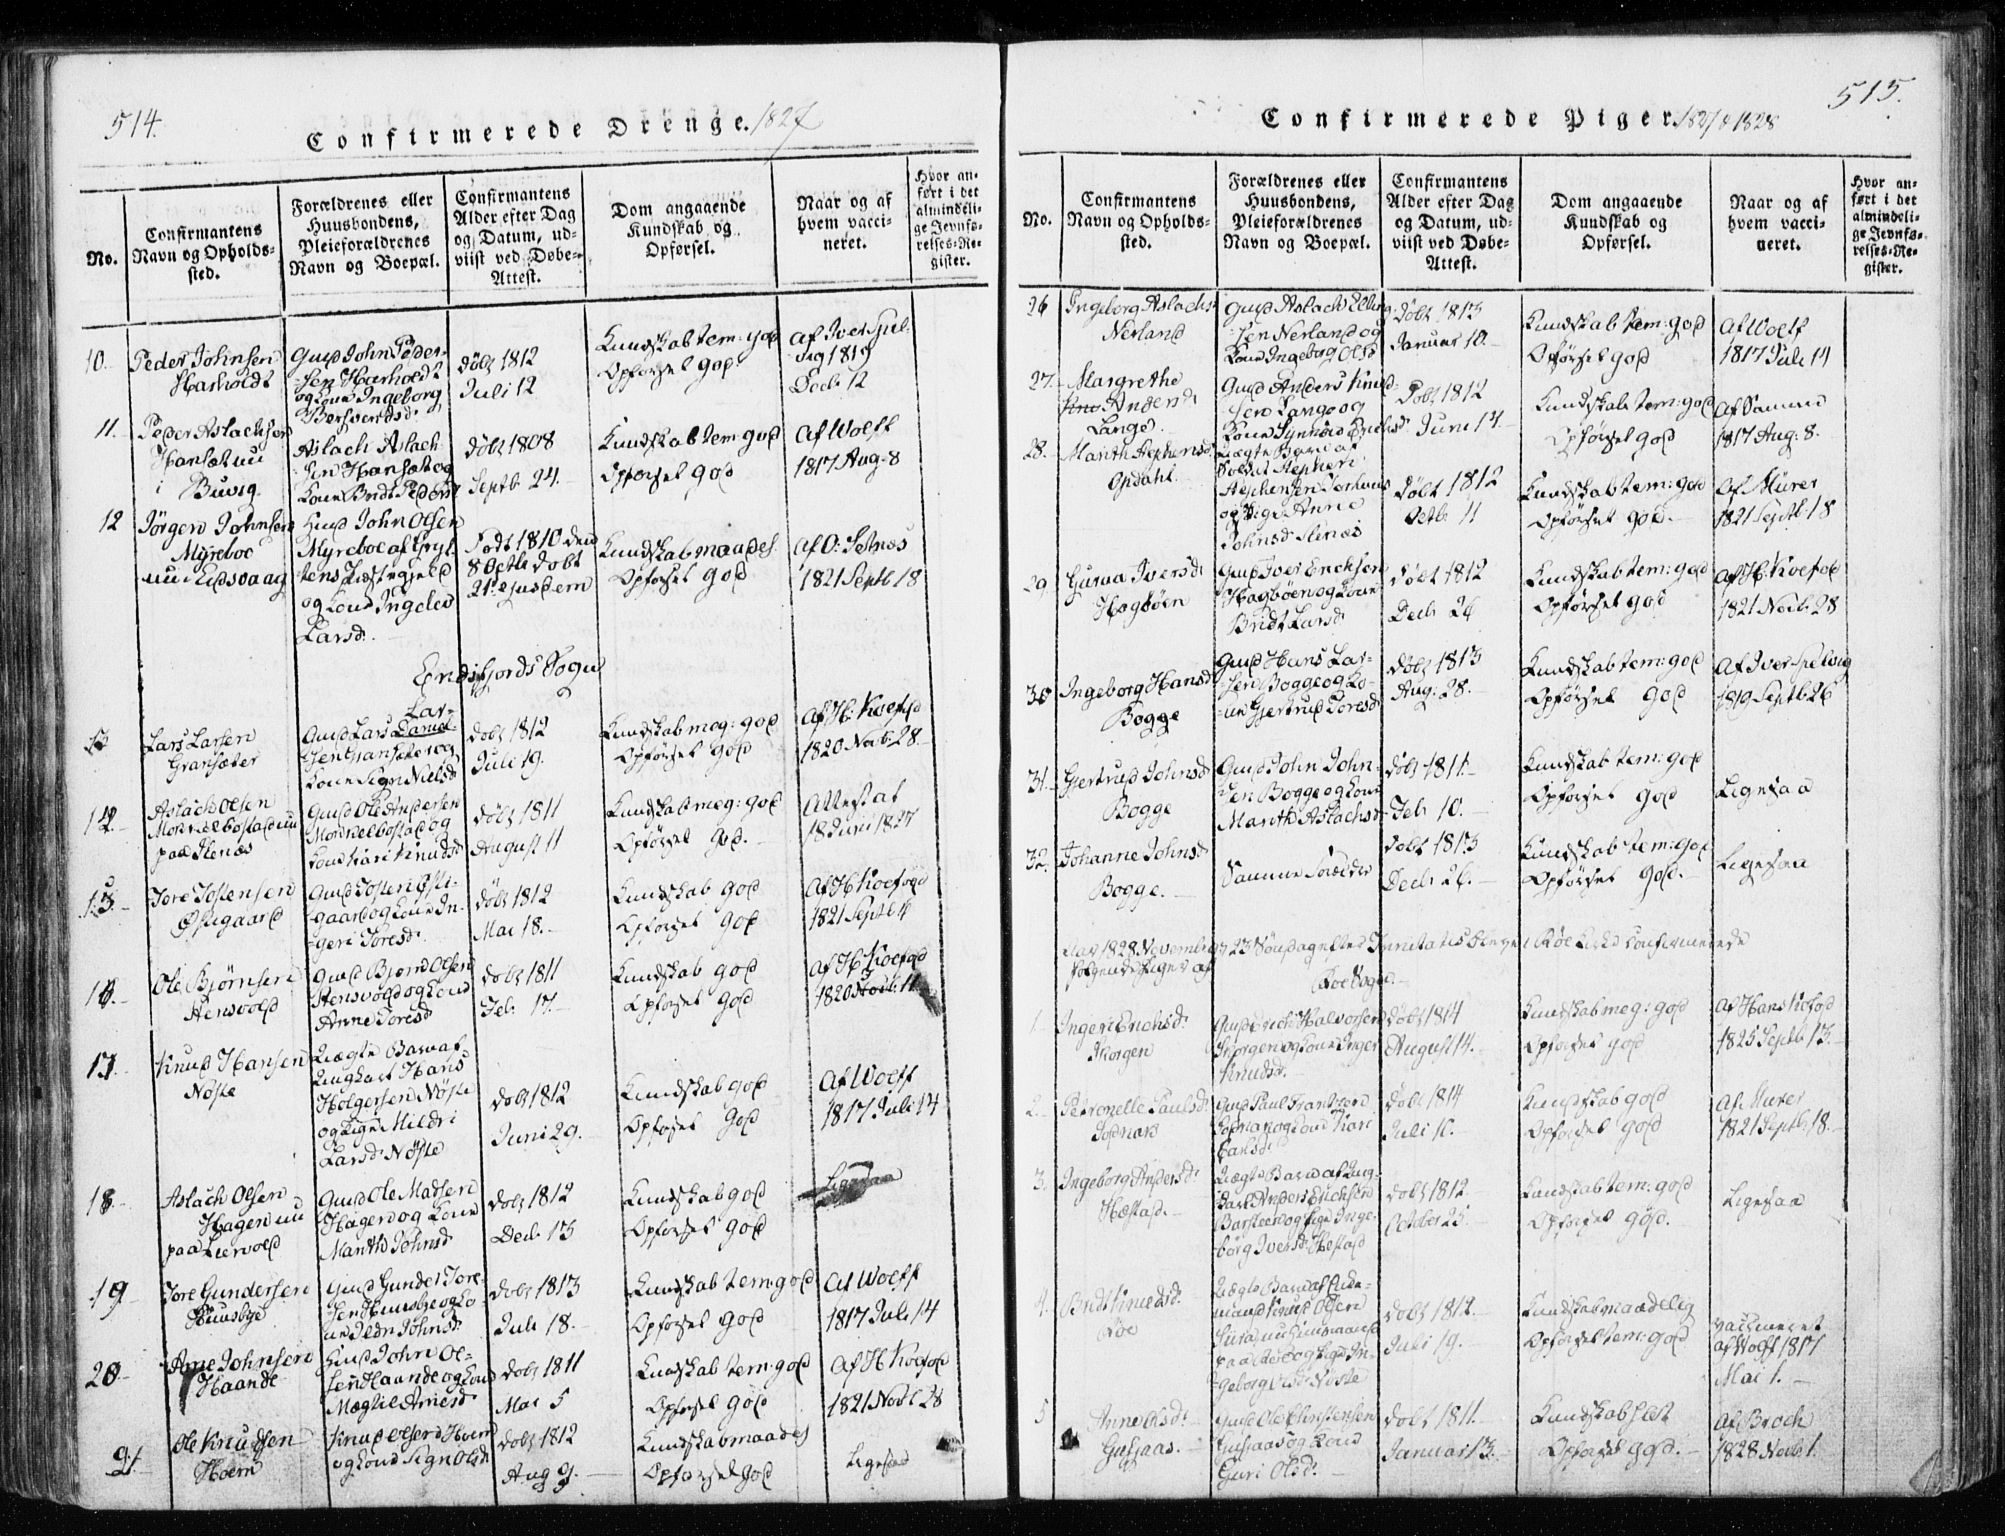 514.
Confirmerede Drenge. 1827
No.
Confirmantens
Navn og Opholds-
sted.
Forældrenes eller
Huusbondens,
Pleieforældrenes
Navn og Boepæl.
Confirmantens
Alder efter Dag
og Datum, ud-
viist ved Døbe-
Attest.
Dom angaaende
Kundskab og
Opførsel.
Naar og af
hvem vacci-
neret.
Hvor an-
ført i det
almindeli-
ge Jevnfø-
relses-Re-
gister.
10.
Peder Johnsen
Harholdt
Gmd John Peder-
-sen Harholdt
og Kone Ingeborg
døbt 1812
Juli 12
Kundskab tem: god
Opførsel god
af Iver Spel-
1819
Decb. 12
11.
Peder Aslachsen
Hansæt nu
i Buvig
Aslach Aslach-
-sen Hansæt og
Kone Bridt Pedersd
døbt 1808
Septb. 24
Kundskab tem: god
Opførsel god
Af Wolff
1817 Aug. 8
12
Jörgen Johnsen
Myreboe
nu Eidsvaag
Hmd John Olsen
Myreboe af Gryt-
tens Præstegjeld
og Kone Ingelev
Larsd.
Født 1810 den
8 Octbr døbt
21 ejusdem
Kundskab maadel.
Opførsel god
af O: Setnæs
1821 Septb 18
Eridsfjords Sogn
13
Lars Larsen
Gransæter
Gmd Lars Lar-
-sen Gransæter og
Kone Sign Nielsd
døbt 1812
Juli 19.
Kundskab meg: god
Opførsel god
Af H. Koefod
1820 Novb. 28.
14
Aslach Olsen
Morkelbostad nu
paa Stenæs
Gmd Ole Andersen
Morkelbostad og
Kone Kari Knudsd
døbt 1811
August 11
Kundskab meg: god
Opførsel god.
Attest af
18 Juni 1827
15.
Tore Jostensen
Østigaard
Gmd Josten Østi-
gaard og Kone In-
-geri Toresd.
døbt 1812
Mai 18.
Kundskab god
Opførsel god
Af H Koefod
1821 Septb 4
16.
Ole Bjørnsen
Stensvold
Gmd Bjørn Olsen
Stensvold og Kone
Anne Toresd
døbt 1811
Feb. 17.
Kundskab god
Opførsel god
af H Koefod
1820 Novb. 11
17.
Knud Hansen
Nöste
Uægte Barn af
Ungkarl Hans
Holgersen Nöste
og Pige Mildri
Larsd Nöste
døbt 1812
Juni 29.
Kundskab god
Opførsel god
Af Wolff
1817. Juli 14
18.
Aslach Olsen
Hagen nu
paa Liervold
Gmd Ole Madsen
Hagen og Kone
Marith Johnsd
døbt 1812
Decb 13
Kundskab god
Opførsel god
Ligesaa
19.
Tore Gundersen
Huusbye
Gmd Gunder Tore-
-sen Huusbye og Ko-
-ne Ildri Johnsd.
døbt 1813
Juli 18.
Kundskab tem: god
Opførsel god
Af Wolff
1817 Juli 14
20.
Arne Johnsen
Haande
Hmd John Ol-
sen Haande og Kone
Magli Arnesd
døbt 1811
Mai 5
Kundskab tem: god
Opførsel god
Af H Koefod
1821 Novb 28
21.
Ole Knudsen
Hoem
Knud Olsen Hoem
og Kone Sign Olsd
døbt 1812
Aug 9.
Kundskab maadel
Opførsel god
Ligesaa
515.
Confirmerede Piger 1827 & 1828
No.
Confirmantens
Navn og Opholds-
sted.
Forældrenes eller
Huusbondens,
Pleieforældrenes
Navn og Boepæl.
Confirmantens
Alder efter Dag
og Datum, ud-
viist ved Døbe-
Attest.
Dom angaaende
Kundskab og
Opførsel.
Naar og af
hvem vacci-
neret.
Hvor an-
ført i det
almindeli-
ge Jevnfø-
relses-Re-
gister.
26
Ingeborg Aslachsd
Nerland
Gmd Aslach Elling-
-sen Nerland og
Kone Ingeborg Olsd
døbt 1813
Januar 10.
Kundskab tem: god
Opførsel god
Af Wolff
1817 Juli 14
27.
Margrethe
Andersd
Lange.
Gmd Anders Knud-
-sen Lange og
Kone Synnöve
Døbt 1812
Juni 14.
Kundskab tem: god
Opførsel god
af Samme
1817 Aug: 8.
28.
Marith Stephensd
Opdahl.
Uægte Barn af
Soldat Stephen
Stephensen
og Pige Anne
Johnsd Stenæs
døbt 1812
Octb 11
Kundskab tem: god
Opførsel god.
Af Mürer
1821 Septb 18
29
Guroa Iversd.
Hagböen
Gmd Iver Erichsen
Hagböen og Kone
Bridt Larsd
døbt 1812
Decb 26
Kundskab tem: god
Opførsel god
Af H. Koefod
1821 Novb. 28
30
Ingeborg Hansd
Bogge
Gmd Hans Lar-
-sen Bogge og Ko-
-ne Gjertrud Toresd
døbt 1813
Aug: 28.
Kundskab tem: god
Opførsel god
Af Iver Spelvig
1819 Septb 26
31.
Gjertrud Johnsd
Bogge
Gmd John John-
-sen Bogge og Kone
Marith Aslachsd
døbt 1811.
Feb 10.
Kundskab tem: god
Opførsel god
Ligesaa
32.
Johanne Johnsd
Bogge.
Samme Forældre
døbt 1813
Decb 26.
Kundskab tem: god
Opførsel god.
Ligesaa
Aar 1828 November 23 Søndag efter Trinitatis bleve i Röe Kirke confirmerede
følgende Piger af
Röe Sogn.
1
Ingeri Erichsd.
Skorgen
Gmd Erich Halvorsen
Skorgen og Kone Inger
Knudsd.
døbt 1814
August 14.
Kundskab meg: god
Opførsel god
Af Hans Koefod
1825 Septb 13.
2.
Petronelle Paulsd.
Gmd Paul Frantzen
og Kone Kari
døbt 1814
Juli 10.
Kundskab god
Opførsel god
Af Mürer
1821 Septb 18.
3.
Ingeborg Andersd.
Hestad.
Uægte Barn af Ung-
karl Anders Erichsen
Barsteen og Pige Inge-
borg Iversd: Hestad
døbt 1812
October 25.
Kundskab tem: god
Opførsel god.
Ligesaa
4.
Bridt Knudsd.
Röe
Uægte Barn af Enke-
mand Knud Olsen
paa Röe og Pige In-
-geborg Olsd Nöste
døbt 1812.
Juli 19.
Kundskab maadelig
Opførsel tem: god
vaccineret
af Wolff 1817
Mai 1.
5
Anne Olsd.
Gusjaas.
Gmd Ole Christensen
Gusjaas og Kone
Guri Olsd.
døbt 1811.
Januar 13.
Kundskab slet
Opførsel god.
Af Broch
1828 Novb 1.